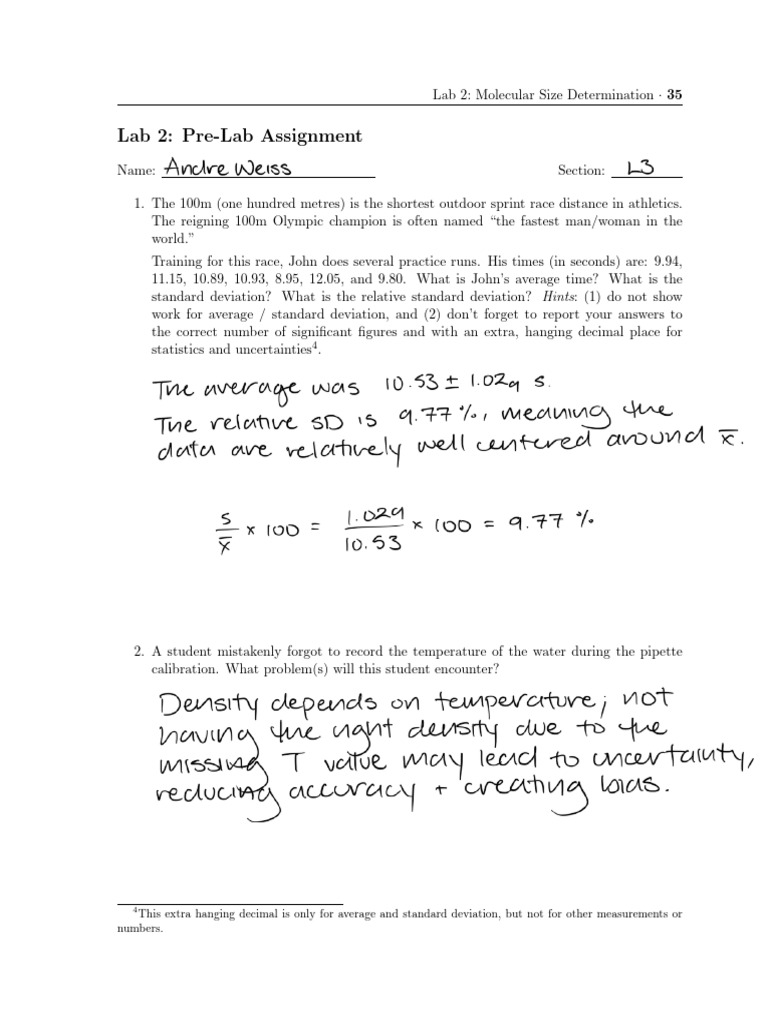 Lab 2: Molecular Size Determination · 35
Lab 2: Pre-Lab Assignment
Name: Andre Weiss Section: L3
1. The 100m (one hundred metres) is the shortest outdoor sprint race distance in athletics.
The reigning 100m Olympic champion is often named “the fastest man/woman in the
world.”
Training for this race, John does several practice runs. His times (in seconds) are: 9.94,
11.15, 10.89, 10.93, 8.95, 12.05, and 9.80. What is John's average time? What is the
standard deviation? What is the relative standard deviation? Hints: (1) do not show
work for average / standard deviation, and (2) don't forget to report your answers to
the correct number of significant figures and with an extra, hanging decimal place for
statistics and uncertainties⁴.
The average was 10.53 ± 1.029 s.
The relative SD is 9.77 %, meaning the
data are relatively well centered around x̅.
s/x̅ × 100 = 1.029/10.53 × 100 = 9.77 %
2. A student mistakenly forgot to record the temperature of the water during the pipette
calibration. What problem(s) will this student encounter?
Density depends on temperature; not
having the right density due to the
missing T value may lead to uncertainty,
reducing accuracy + creating bias.
⁴This extra hanging decimal is only for average and standard deviation, but not for other measurements or
numbers.